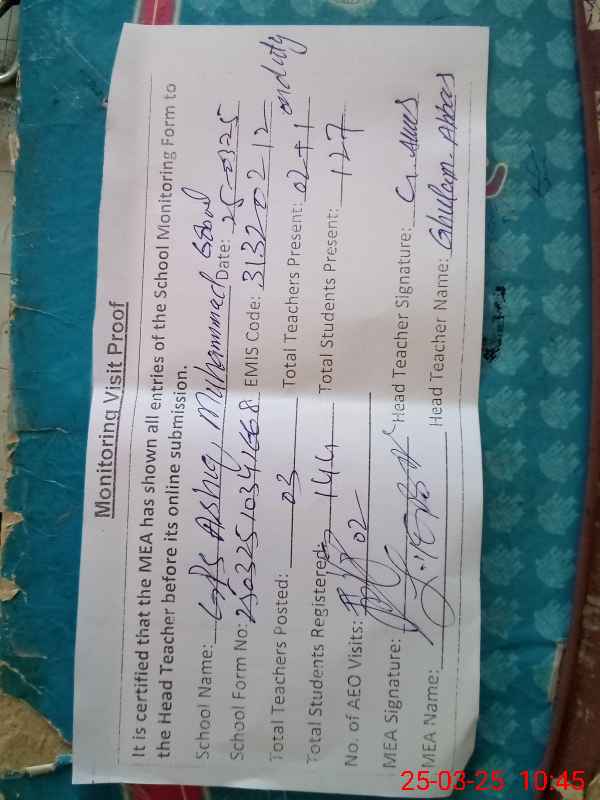 Monitoring Visit Proof
It is certified that the MEA has shown all entries of the School Monitoring Form to
the Head Teacher before its online submission.
School Name: GPS Ashiq Muhammad Date: 25-03-25
School Form No: 25032510341668 EMIS Code: 31320212
Total Teachers Posted: 03 Total Teachers Present: 02+1 on duty
Total Students Registered: 144 Total Students Present: 127
No. of AEO Visits: 02
MEA Signature: Head Teacher Signature: G. Abbas
MEA Name: Head Teacher Name: Ghulam Abbas
25-03-25 10:45